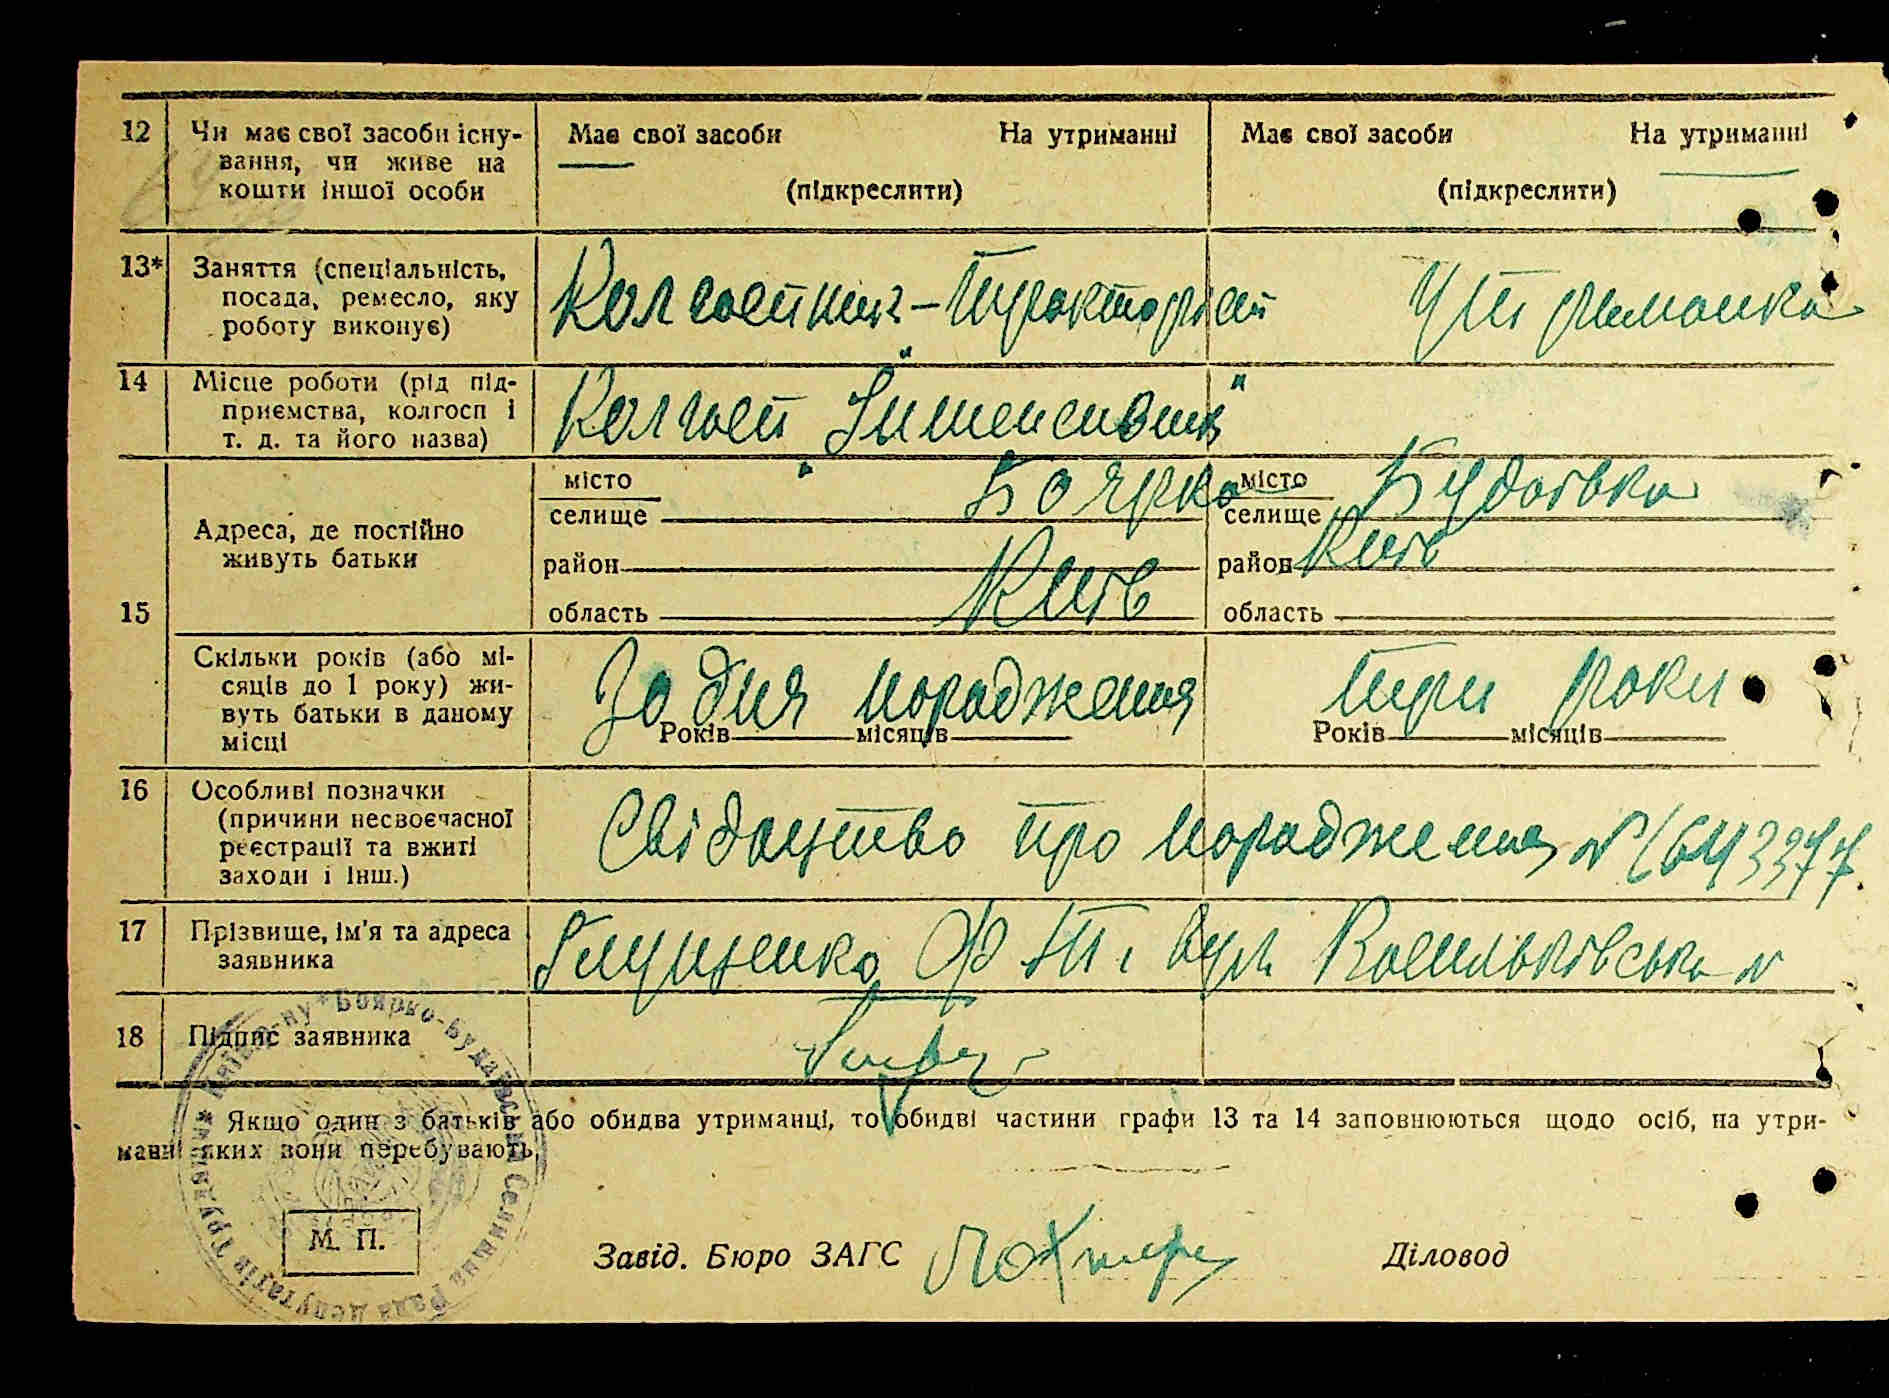 12 Чи має свої засоби існу- Має свої засоби На утриманні Має свої засоби На утриманні
вання, чи живе на
кошти іншої особи (підкреслити) (підкреслити)
13* Заняття (спеціальність,
посада, ремесло, яку Колгоспник-Тракторіст Утриманка
роботу виконує)
14 Місце роботи (рід під-
приємства, колгосп і Колгосп
т. д. та його назва)
місто Боярка місто Будаївка
селище селище
Адреса, де постійно
живуть батьки район район Київ
15 область Київ область
Скільки років (або мі-
сяців до 1 року) жи- За дня народження Три роки
вуть батьки в даному Років місяців Років місяців
місці
16 Особливі позначки
(причини несвоєчасної
реєстрації та вжиті Свідоцтво про народження №
заходи і інш.)
17 Прізвище, ім'я та адреса Глущенко Ф вул. Васильківська №
заявника
18 Підпис заявника
Якщо один з батьків або обидва утриманці, то обидві частини графи 13 та 14 заповнюються щодо осіб, на утри-
манні яких вони перебувають.
М. П.
Завід. Бюро ЗАГС Діловод
Боярко-Будаївська Селищна Рада Депутатів Трудящих